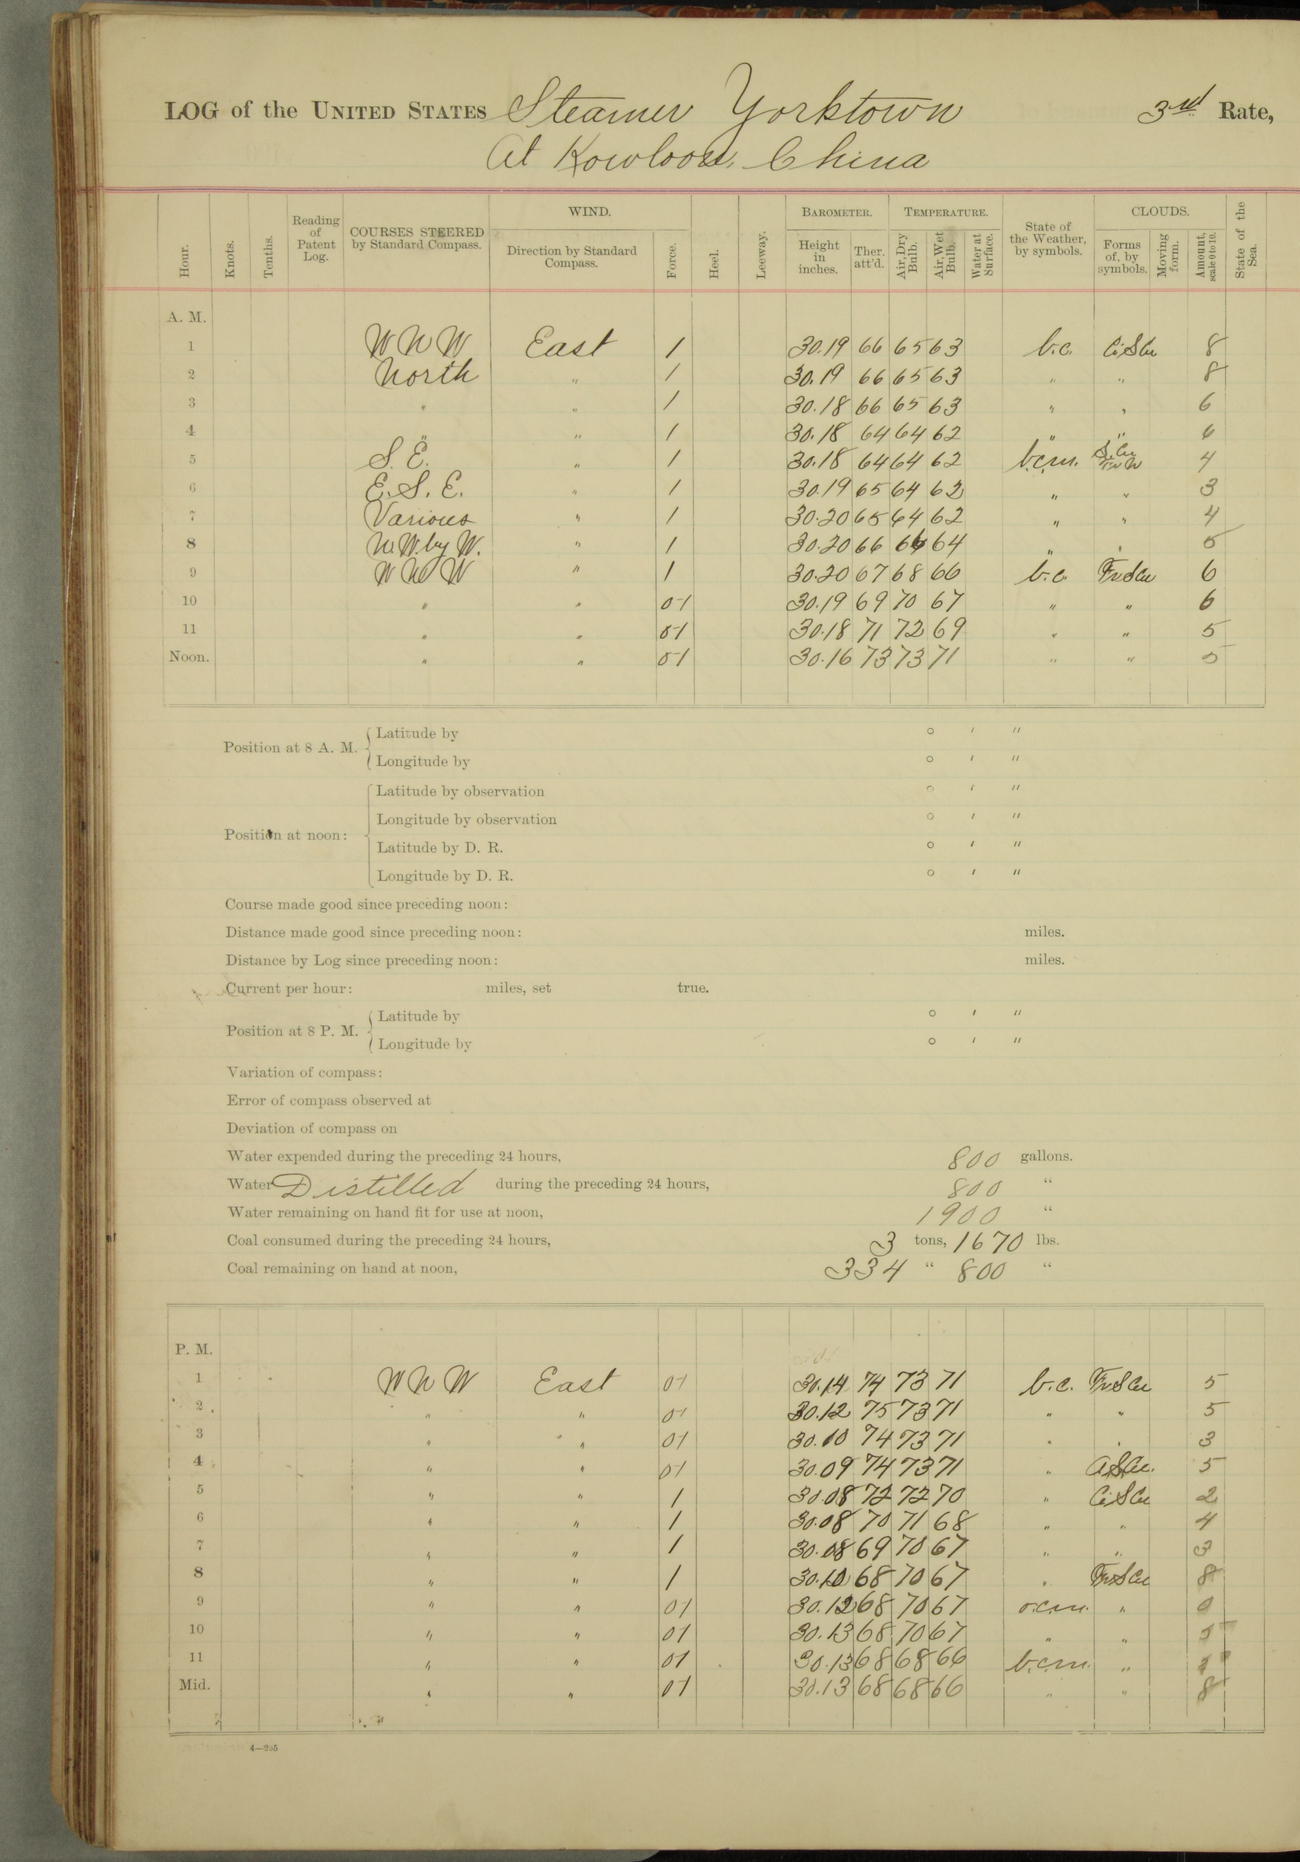 LOG of the UNITED STATES Steamer Yorktown 3rd Rate,
At Kowloon, China
WIND. BAROMETER. TEMPERATURE. CLOUDS.
Hour. Knots. Tenths. Reading of Patent Log. COURSES STEERED by Standard Compass. Direction by Standard Compass. Force. Heel. Leeway. Height in inches. Ther. att'd. Air, Dry Bulb. Air, Wet Bulb. Water at Surface. State of the Weather, by symbols. Forms of, by symbols. Moving form. Amount, scale 0 to 10. State of the Sea.
A. M.
1 W N W East 1 30.19 66 65 63 b.c. Ci.S.Cu 8
2 North " 1 30.19 66 65 63 " " 8
3 " " 1 30.18 66 65 63 " " 6
4 " " 1 30.18 64 64 62 " " 6
5 S. E. " 1 30.18 64 64 62 b.c.m. 4
6 E. S. E. " 1 30.19 65 64 62 " " 3
7 Various " 1 30.20 65 64 62 " " 4
8 N.W. by W. " 1 30.20 66 66 64 " " 5
9 W N W " 1 30.20 67 68 66 b.c. Fr.S.Cu 6
10 " " 0-1 30.19 69 70 67 " " 6
11 " " 0-1 30.18 71 72 69 " " 5
Noon. " " 0-1 30.16 73 73 71 " " 5
Position at 8 A. M. Latitude by ° ′ ″
Longitude by ° ′ ″
Latitude by observation ° ′ ″
Longitude by observation ° ′ ″
Position at noon:
Latitude by D. R. ° ′ ″
Longitude by D. R. ° ′ ″
Course made good since preceding noon:
Distance made good since preceding noon: miles.
Distance by Log since preceding noon: miles.
Current per hour: miles, set true.
Position at 8 P. M. Latitude by ° ′ ″
Longitude by ° ′ ″
Variation of compass:
Error of compass observed at
Deviation of compass on
Water expended during the preceding 24 hours, 800 gallons.
Water Distilled during the preceding 24 hours, 800 "
Water remaining on hand fit for use at noon, 1900 "
Coal consumed during the preceding 24 hours, 3 tons, 1670 lbs.
Coal remaining on hand at noon, 334 " 800 "
P. M.
1 W N W East 0-1 30.14 74 73 71 b.c. Fr.S.Cu 5
2 " " 0-1 30.12 75 73 71 " " 5
3 " " 0-1 30.10 74 73 71 " " 3
4 " " 0-1 30.09 74 73 71 " 5
5 " " 1 30.08 72 72 70 " Ci.S.Cu 2
6 " " 1 30.08 70 71 68 " " 4
7 " " 1 30.08 69 70 67 " " 3
8 " " 1 30.10 68 70 67 " Fr.S.Cu 8
9 " " 0-1 30.12 68 70 67 o.c.m. "
10 " " 0-1 30.13 68 70 67 " "
11 " " 0-1 30.13 68 68 66 b.c.m. "
Mid. " " 0-1 30.13 68 68 66 " " 8
4—205